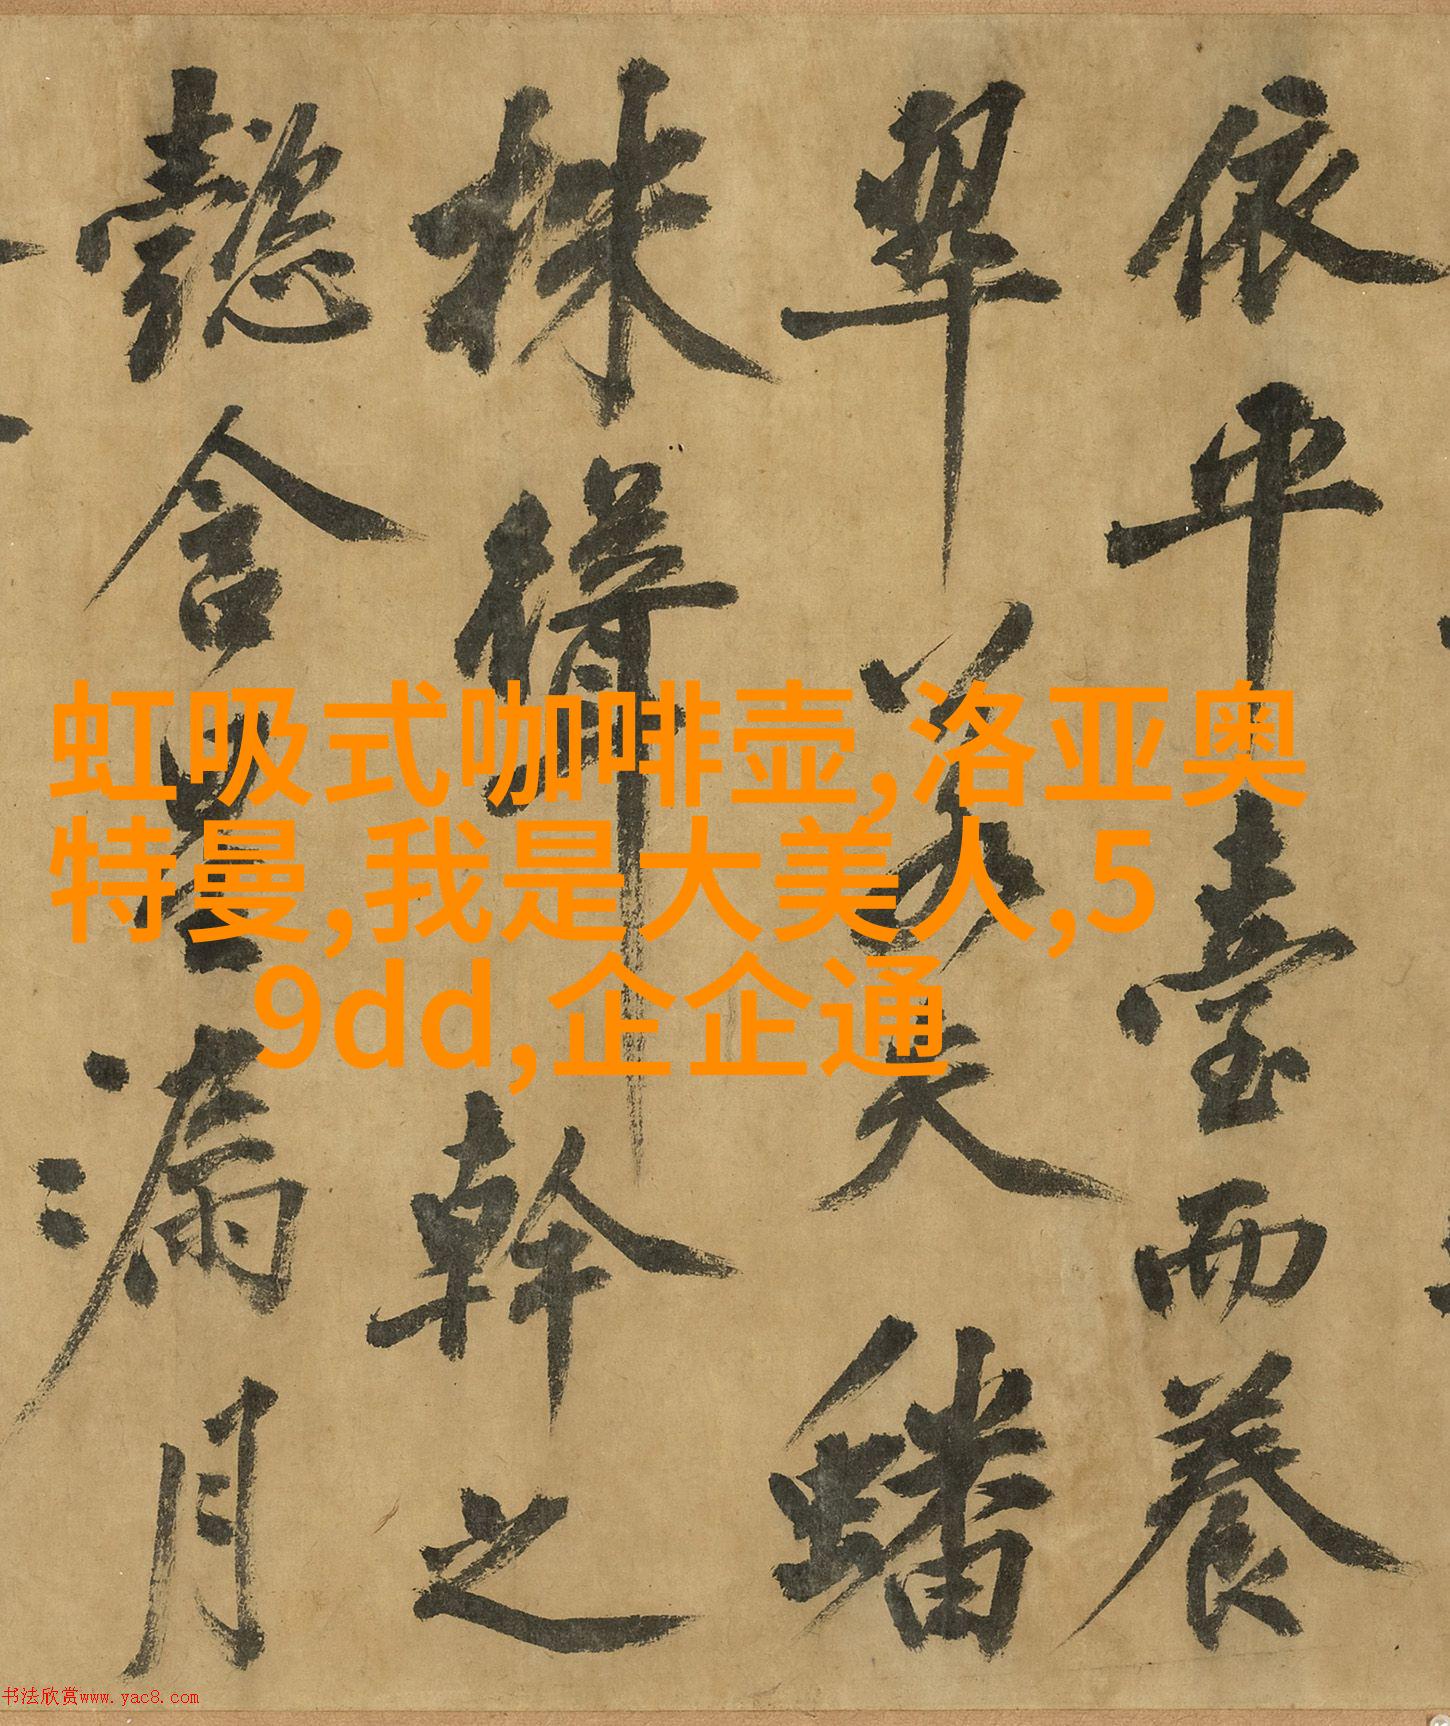 依平臺而養
翠若夫蟠
株幹之
懿含星漏月
虹吸式咖啡壶,洛亚奥
特曼,我是大美人,5
9dd,企企通
书法欣赏www.yac8.com